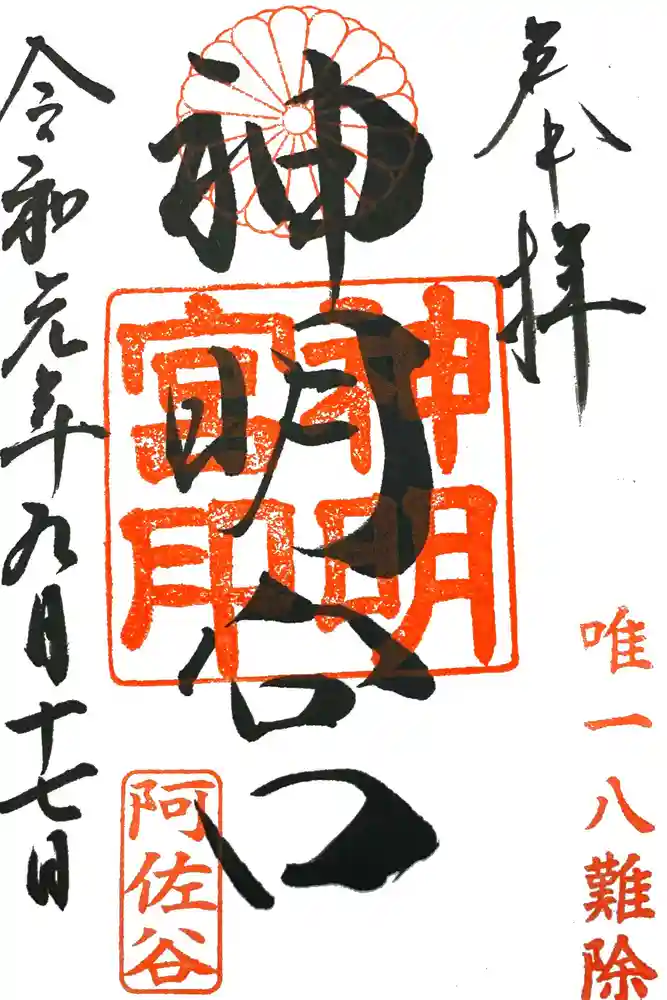 奉拝
唯一八難除
神明宮
神明
宮印
阿佐谷
令和元年九月十七日